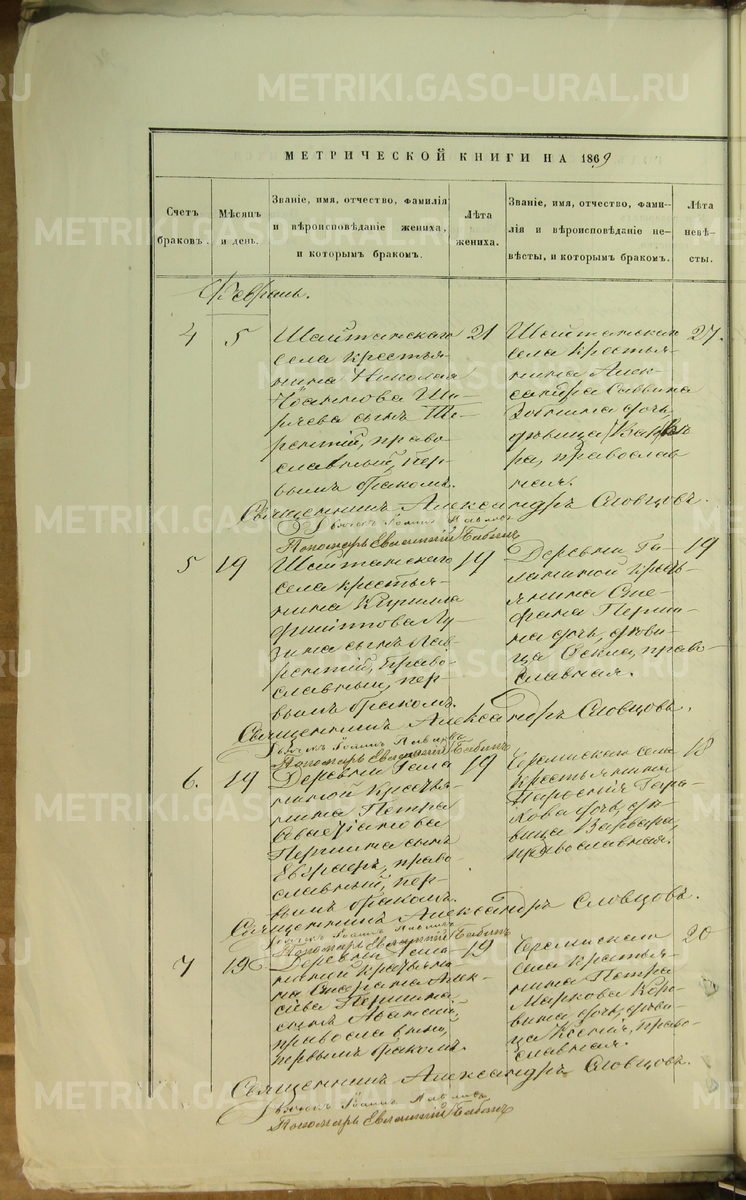 МЕТРИЧЕСКОЙ КНИГИ НА 1869
Счетъ браковъ.
Мѣсяцъ и день.
Званіе, имя, отчество, фамилія и вѣроисповѣданіе жениха, и которымъ бракомъ.
Лѣта жениха.
Званіе, имя, отчество, фамилія и вѣроисповѣданіе невѣсты, и которымъ бракомъ.
Лѣта невѣсты.
Февраль.
4
5
Шайтанскаго
села крестья-
нина Николая
сынъ Те-
рентій, право-
славный, пер-
вымъ бракомъ.
21
Шайтанскаго
села крестья-
нина Алек-
сандра Саввина
дочь,
дѣвица Варва-
ра, православ
ная.
27.
Священникъ Александръ Словцовъ.
Дьячокъ Іоаннъ
Пономарь Евлампій Бабинъ
5
19
Шайтанскаго
села крестья-
нина Кирилла
сынъ Лав-
рентій, право-
славный, пер-
вымъ бракомъ.
19
Деревни Га-
ланиной кресть-
янина Сте-
фана Перши-
на дочь, дѣви-
ца Фекла, право-
славная.
19
Священникъ Александръ Словцовъ.
Дьячокъ Іоаннъ
Пономарь Евлампій Бабинъ
6.
19
Деревни Гала
ниной крестья-
нина Петра
Савастіанова
Першина сынъ
Евграфъ, право-
славный, пер-
вымъ бракомъ.
19
села
крестьянина
дочь, дѣ-
вица Варвара,
православная.
18
Священникъ Александръ Словцовъ.
Дьячокъ Іоаннъ
Пономарь Евлампій Бабинъ
7
19
Деревни Гала-
ниной крестьяни-
на Алек-
сѣева Першина
сынъ
православный,
первымъ бракомъ.
19
села крестья-
нина Петра
Маркова Коро-
вина дочь, дѣви-
ца Ксенія, право-
славная.
20
Священникъ Александръ Словцовъ.
Дьячокъ Іоаннъ
Пономарь Евлампій Бабинъ
METRIKI.GASO-URAL.RU